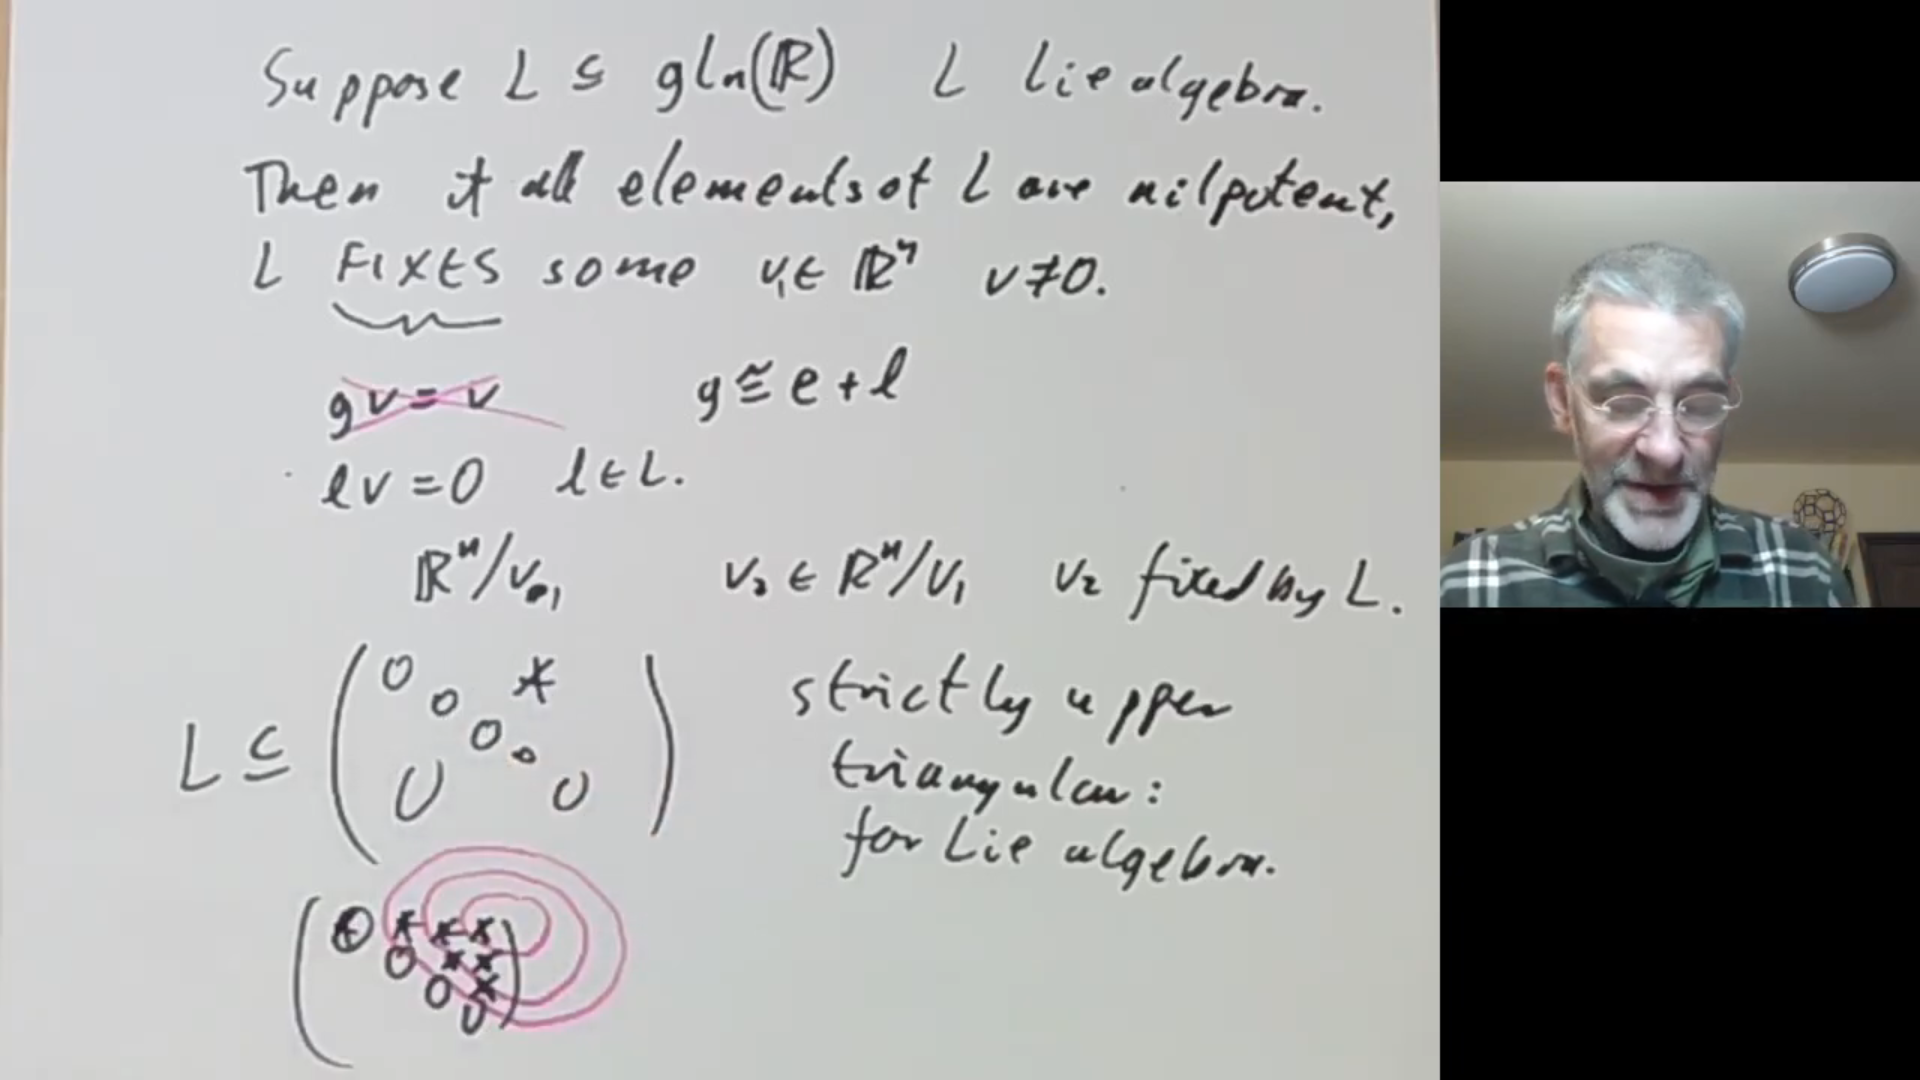 Suppose L ⊆ gln(ℝ) L Lie algebra.
Then if all elements of L are nilpotent,
L FIXES some v₁ ∈ ℝⁿ v≠0.
gv = v g ≅ e + l
lv = 0 l ∈ L.
ℝⁿ/v₁ v₂ ∈ ℝⁿ/v₁ v₂ fixed by L.
L ⊆ ( 0 0 * 0 0 0 0 ) strictly upper
triangular:
for Lie algebra.
( 0 * * *
0 * *
0 *
0 )